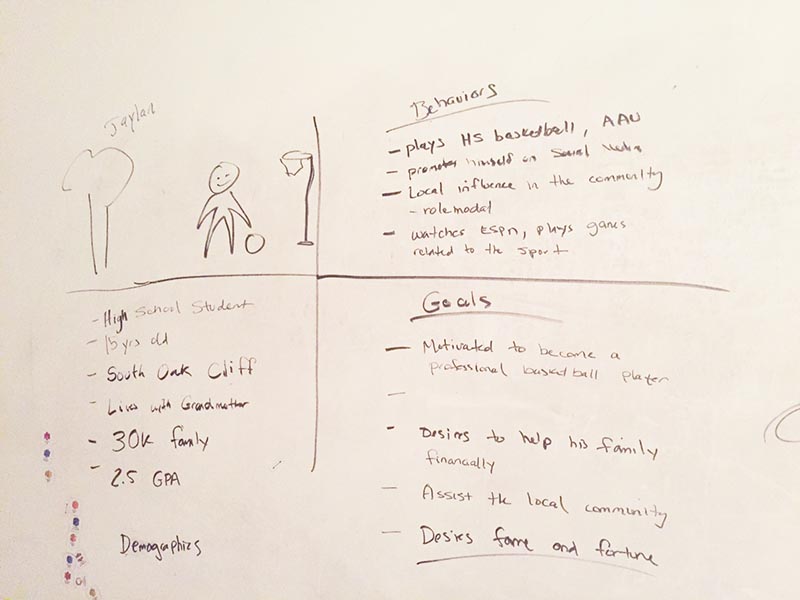 Jaylan
Behaviors
- plays HS basketball, AAU
- promotes himself on Social Media
- Local influence in the community
- role modal
- watches ESPN, plays games
related to the sport
- High School Student
- 15 yrs old
- South Oak Cliff
- Lives with Grandmother
- 30K family
- 2.5 GPA
Demographics
Goals
- Motivated to become a
professional basketball player
-
- Desires to help his family
financially
- Assist the local community
- Desires fame and fortune